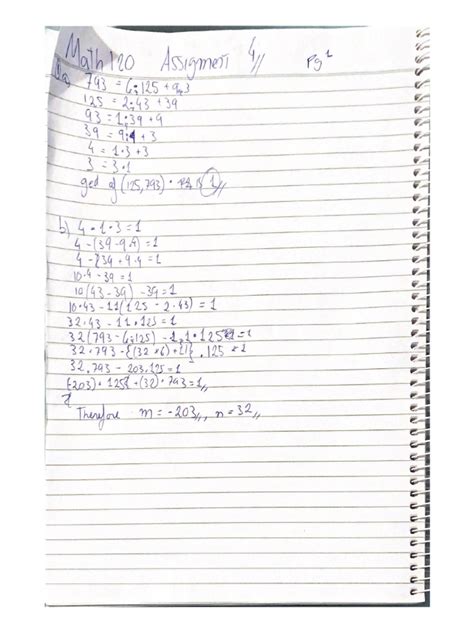 Math 120 Assignment 4// Pg 1
1a, 793 = 6·125 + 43
125 = 2·43 + 39
93 = 1·39 + 4
39 = 9·4 + 3
4 = 1·3 + 3
3 = 3·1
gcd of (125,793) is 1//
b) 4 - 1·3 = 1
4 - (39 - 9.4) = 1
4 - 39 + 9·4 = 1
10·4 - 39 = 1
10(43 - 39) - 39 = 1
10·43 - 11(125 - 2·43) = 1
32·43 - 11·125 = 1
32(793 - 6·125) - 11·125 = 1
32·793 - {(32×6)+11}·125 = 1
32·793 - 203·125 = 1
(-203)·125 + (32)·793 = 1//
Therefore m = -203//, n = 32//